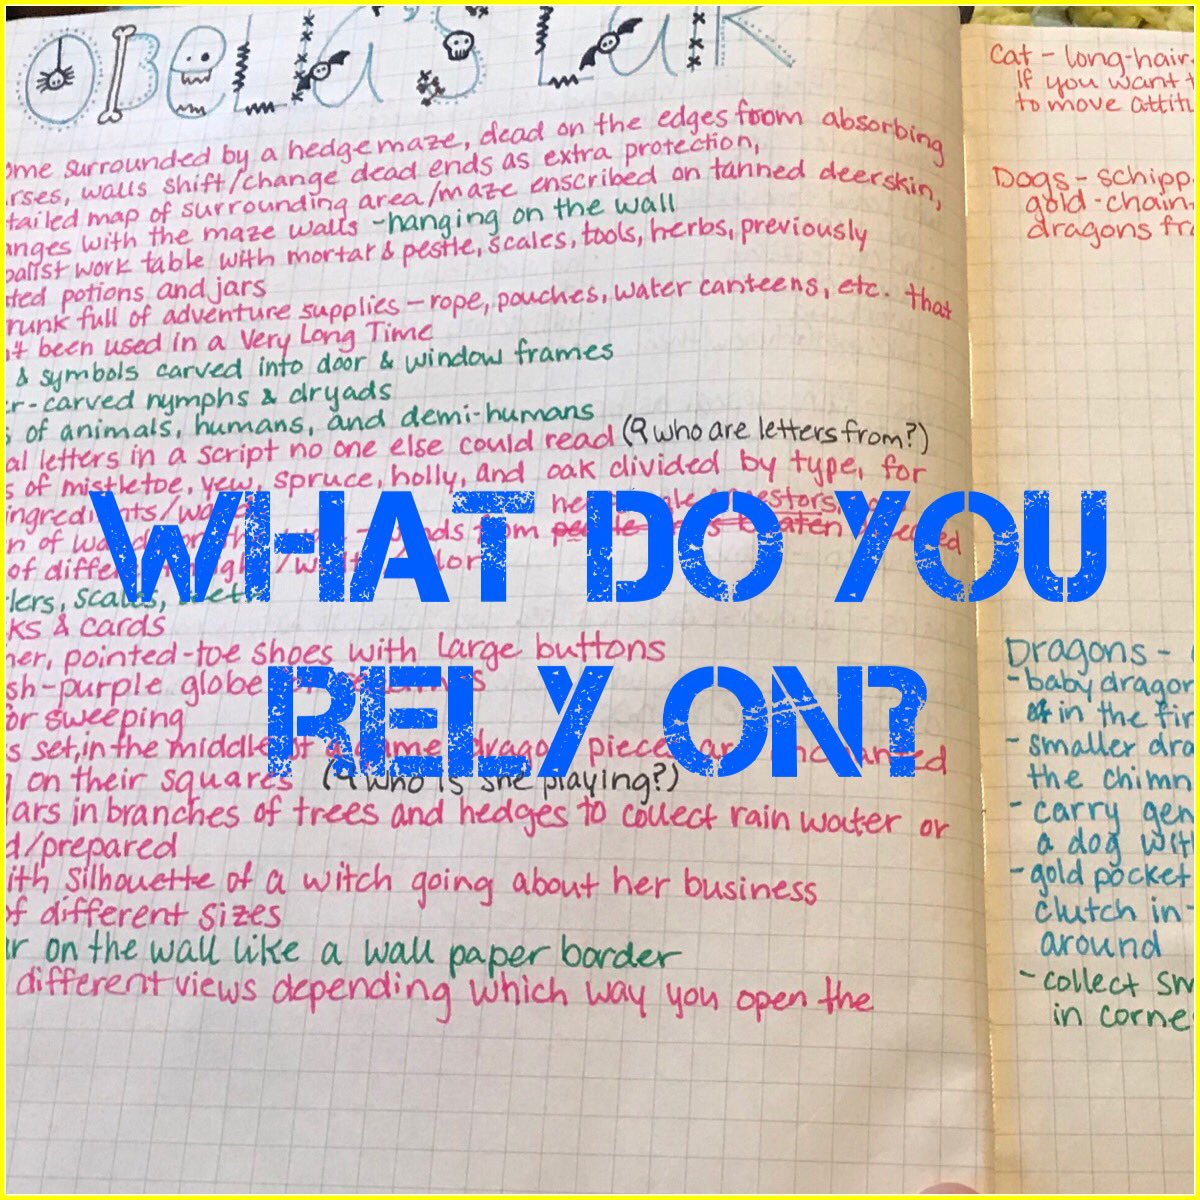 OBELIA'S LAIR
ome surrounded by a hedgemaze, dead on the edges from absorbing
rses, walls shift/change dead ends as extra protection,
tailed map of surrounding area/maze enscribed on tanned deerskin,
anges with the maze walls - hanging on the wall
balist work table with mortar & pestle, scales, tools, herbs, previously
ted potions and jars
runk full of adventure supplies - rope, pouches, water canteens, etc. that
n't been used in a Very Long Time
& symbols carved into door & window frames
r-carved nymphs & dryads
s of animals, humans, and demi-humans
al letters in a script no one else could read (9 who are letters from?)
s of mistletoe, yew, spruce, holly, and oak divided by type, for
ingredients/wa
n of wa from people eaten
of differe
lers, scales, teeth
ks & cards
her, pointed-toe shoes with large buttons
sh-purple globe
or sweeping
s set, in the middle of a game, dragon pieces are enchanted
on their squares (9 who is she playing?)
ars in branches of trees and hedges to collect rain water or
d/prepared
ith silhouette of a witch going about her business
of different sizes
r on the wall like a wall paper border
different views depending which way you open the
Cat - long-hair
If you want t
to move attitu
Dogs - schipp
gold-chain
dragons fr
Dragons -
- baby dragon
in the fir
- smaller dra
the chimn
- carry gen
a dog wit
- gold pocket
clutch in
around
- collect sm
in corne
WHAT DO YOU
RELY ON?